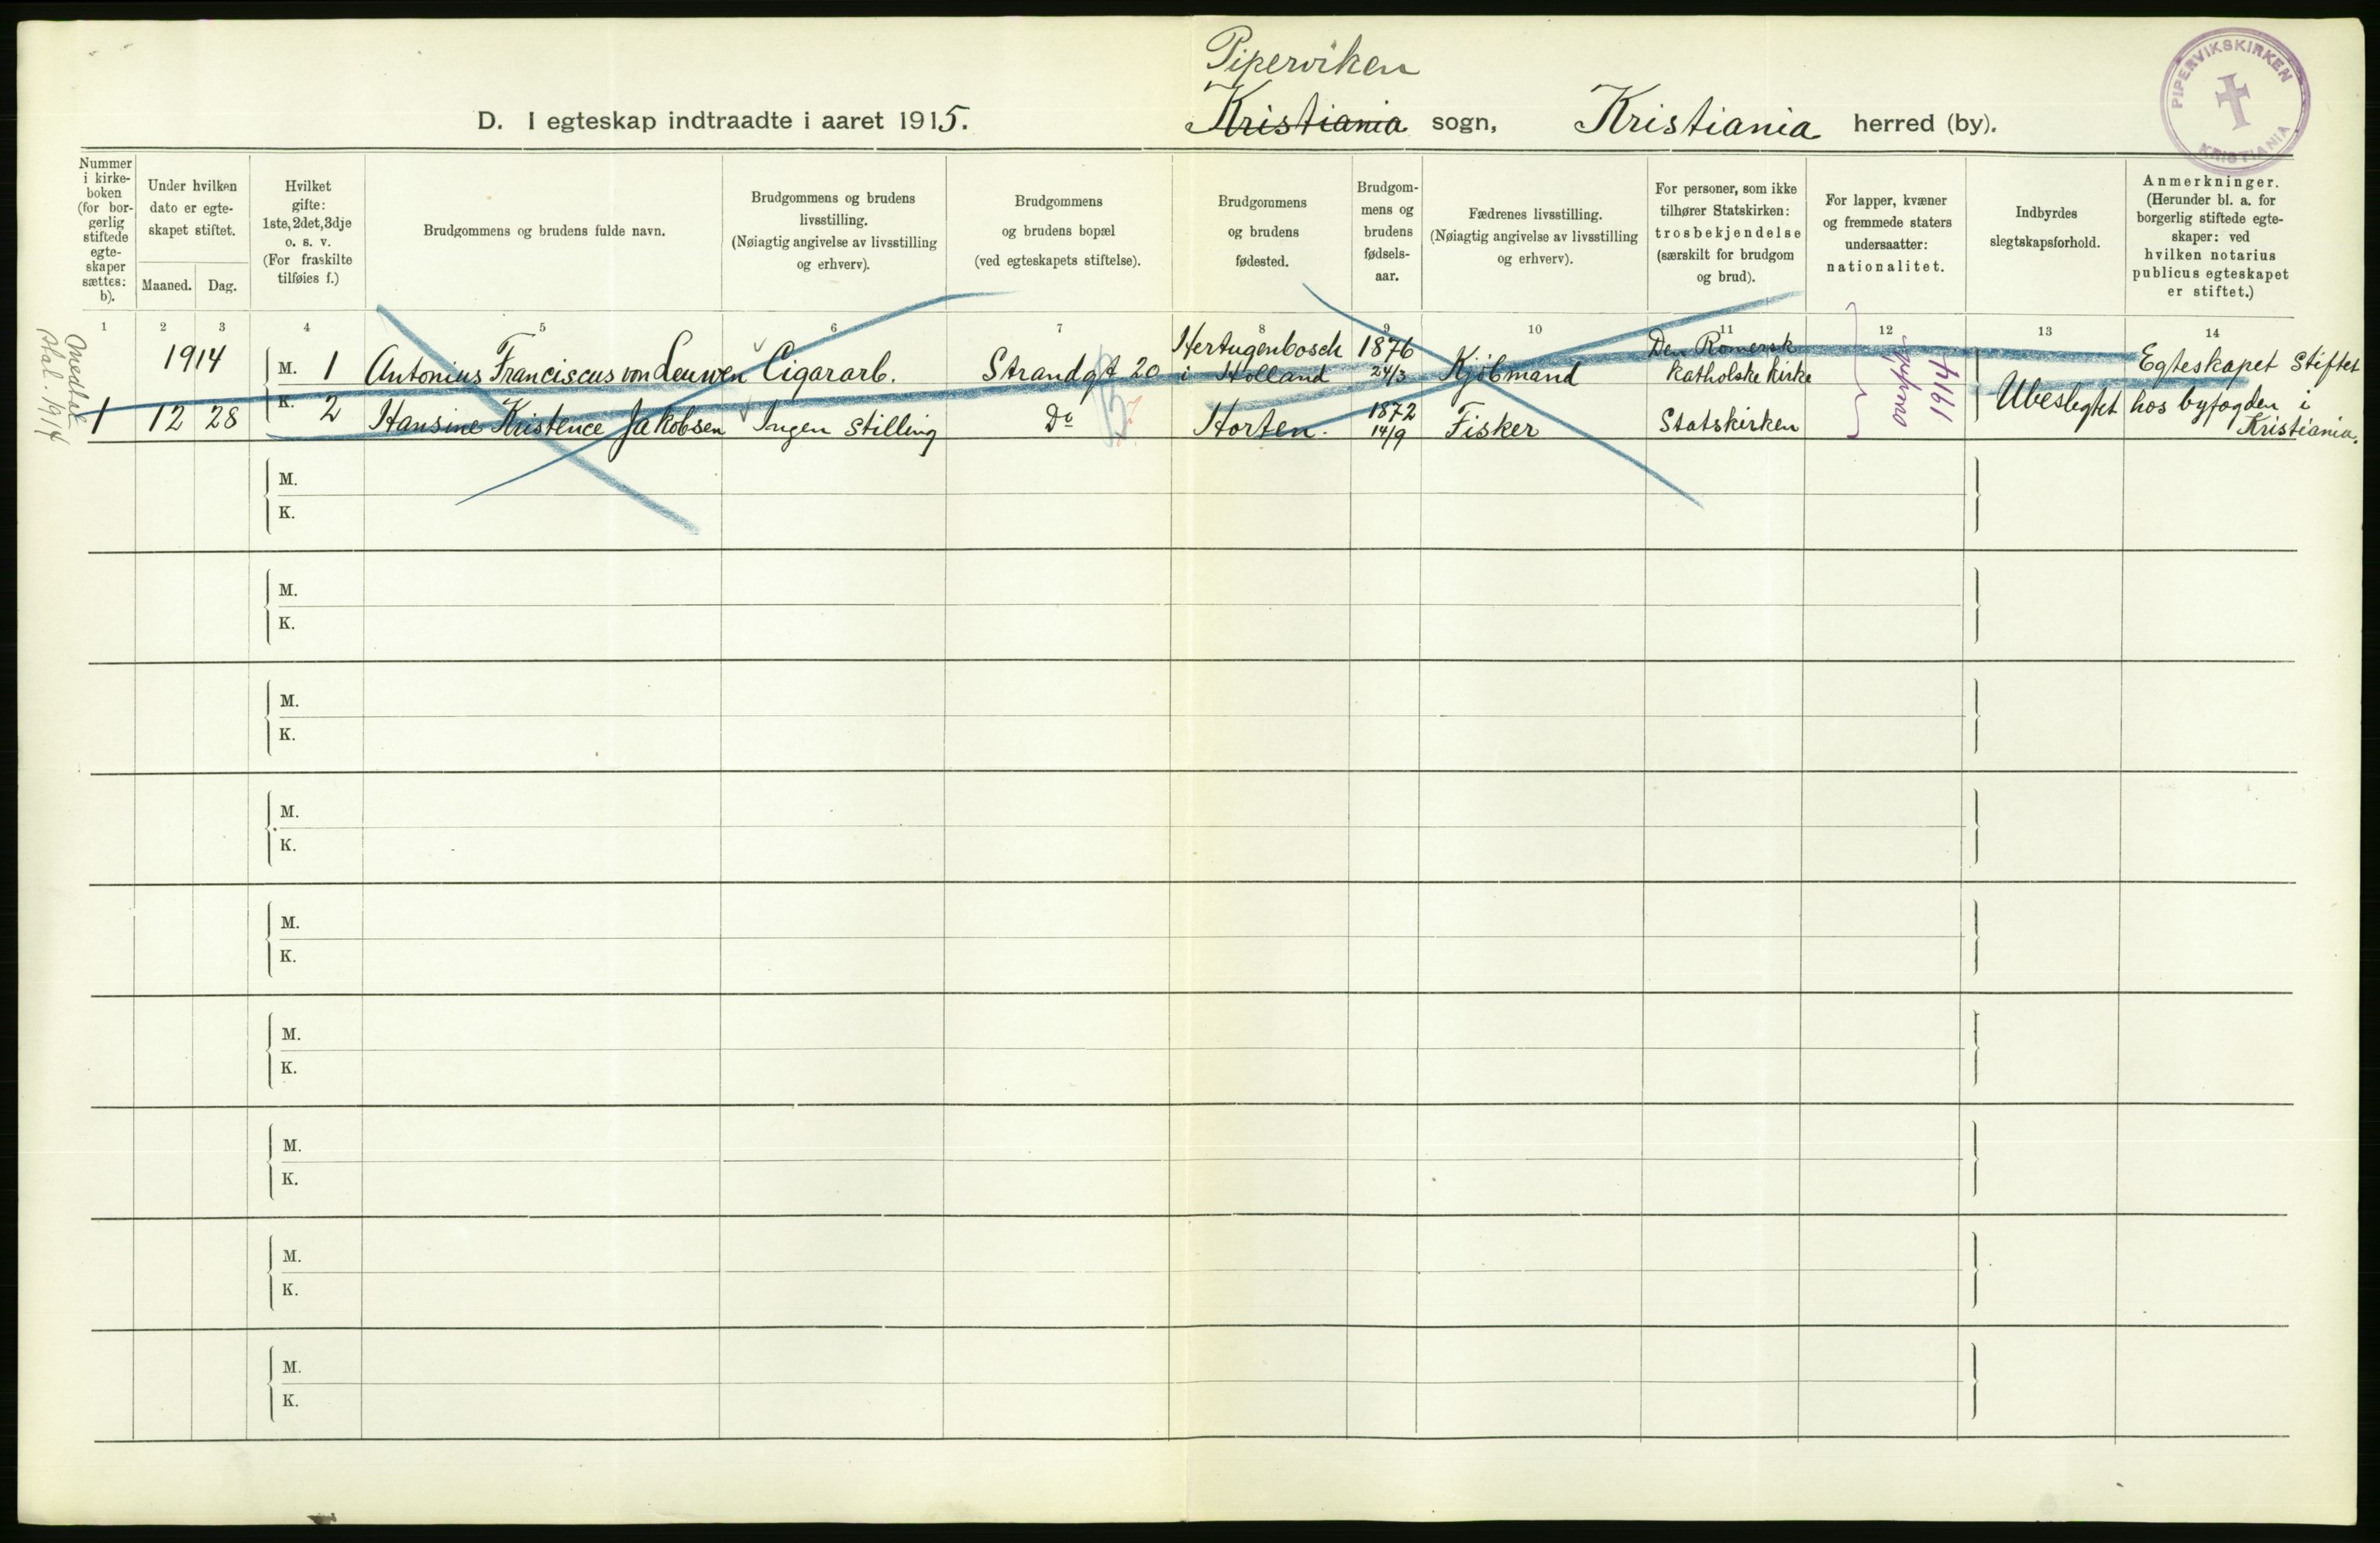 Piperviken
D. I egteskap indtraadte i aaret 1915. Kristiania sogn, Kristiania herred (by).
PIPERVIKSKIRKEN
KRISTIANIA
Nummer i kirke-boken (for bor-gerlig stiftede egte-skaper sættes: b).
Under hvilken dato er egte-skapet stiftet.
Maaned. Dag.
Hvilket gifte: 1ste, 2det, 3dje o. s. v. (For fraskilte tilføies f.)
Brudgommens og brudens fulde navn.
Brudgommens og brudens livsstilling. (Nøiagtig angivelse av livsstilling og erhverv).
Brudgommens og brudens bopæl (ved egteskapets stiftelse).
Brudgommens og brudens fødested.
Brudgom-mens og brudens fødsels-aar.
Fædrenes livsstilling. (Nøiagtig angivelse av livsstilling og erhverv).
For personer, som ikke tilhører Statskirken: trosbekjendelse (særskilt for brudgom og brud).
For lapper, kvæner og fremmede staters undersaatter: nationalitet.
Indbyrdes slegtskapsforhold.
Anmerkninger. (Herunder bl. a. for borgerlig stiftede egte-skaper: ved hvilken notarius publicus egteskapet er stiftet.)
1 2 3 4 5 6 7 8 9 10 11 12 13 14
Medtat
stat. 1914
1914 M. 1 Antonius Franciscus von Leuwen Cigararb. Strandgt 20 Hertugenbosch i Holland 1876 24/3 Kjöbmand Den Romersk Katholske Kirke
1 12 28 K. 2 Hansine Kristence Jakobsen Ingen stilling Do Horten. 1872 14/9 Fisker Statskirken
1914
Ubeslegtet
Egteskapet stiftet
hos byfogden i
Kristiania.
M.
K.
M.
K.
M.
K.
M.
K.
M.
K.
M.
K.
M.
K.
M.
K.
M.
K.